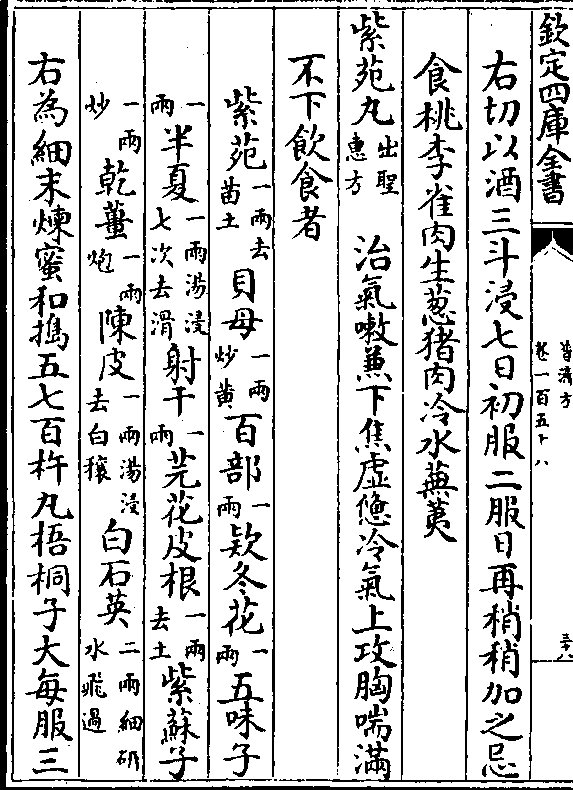 欽定四庫全書
普濟方
卷一百五十八
三十八
右切以酒三斗浸七日初服二服日再稍稍加之忌
食桃李雀肉生葱猪肉冷水蕪荑
紫苑丸出聖惠方 治氣嗽兼下焦虛憊冷氣上攻胸喘滿
不下飲食者
紫苑一兩去苗土 貝母一兩炒黄 百部一兩 欵冬花一兩 五味子
一兩 半夏一兩湯浸七次去滑 射干一兩 芫花皮根一兩去土 紫蘇子
一兩炒 乾薑一兩炮 陳皮一兩湯浸去白穰 白石英二兩細研水飛過
右為細末煉蜜和搗五七百杵丸梧桐子大每服三